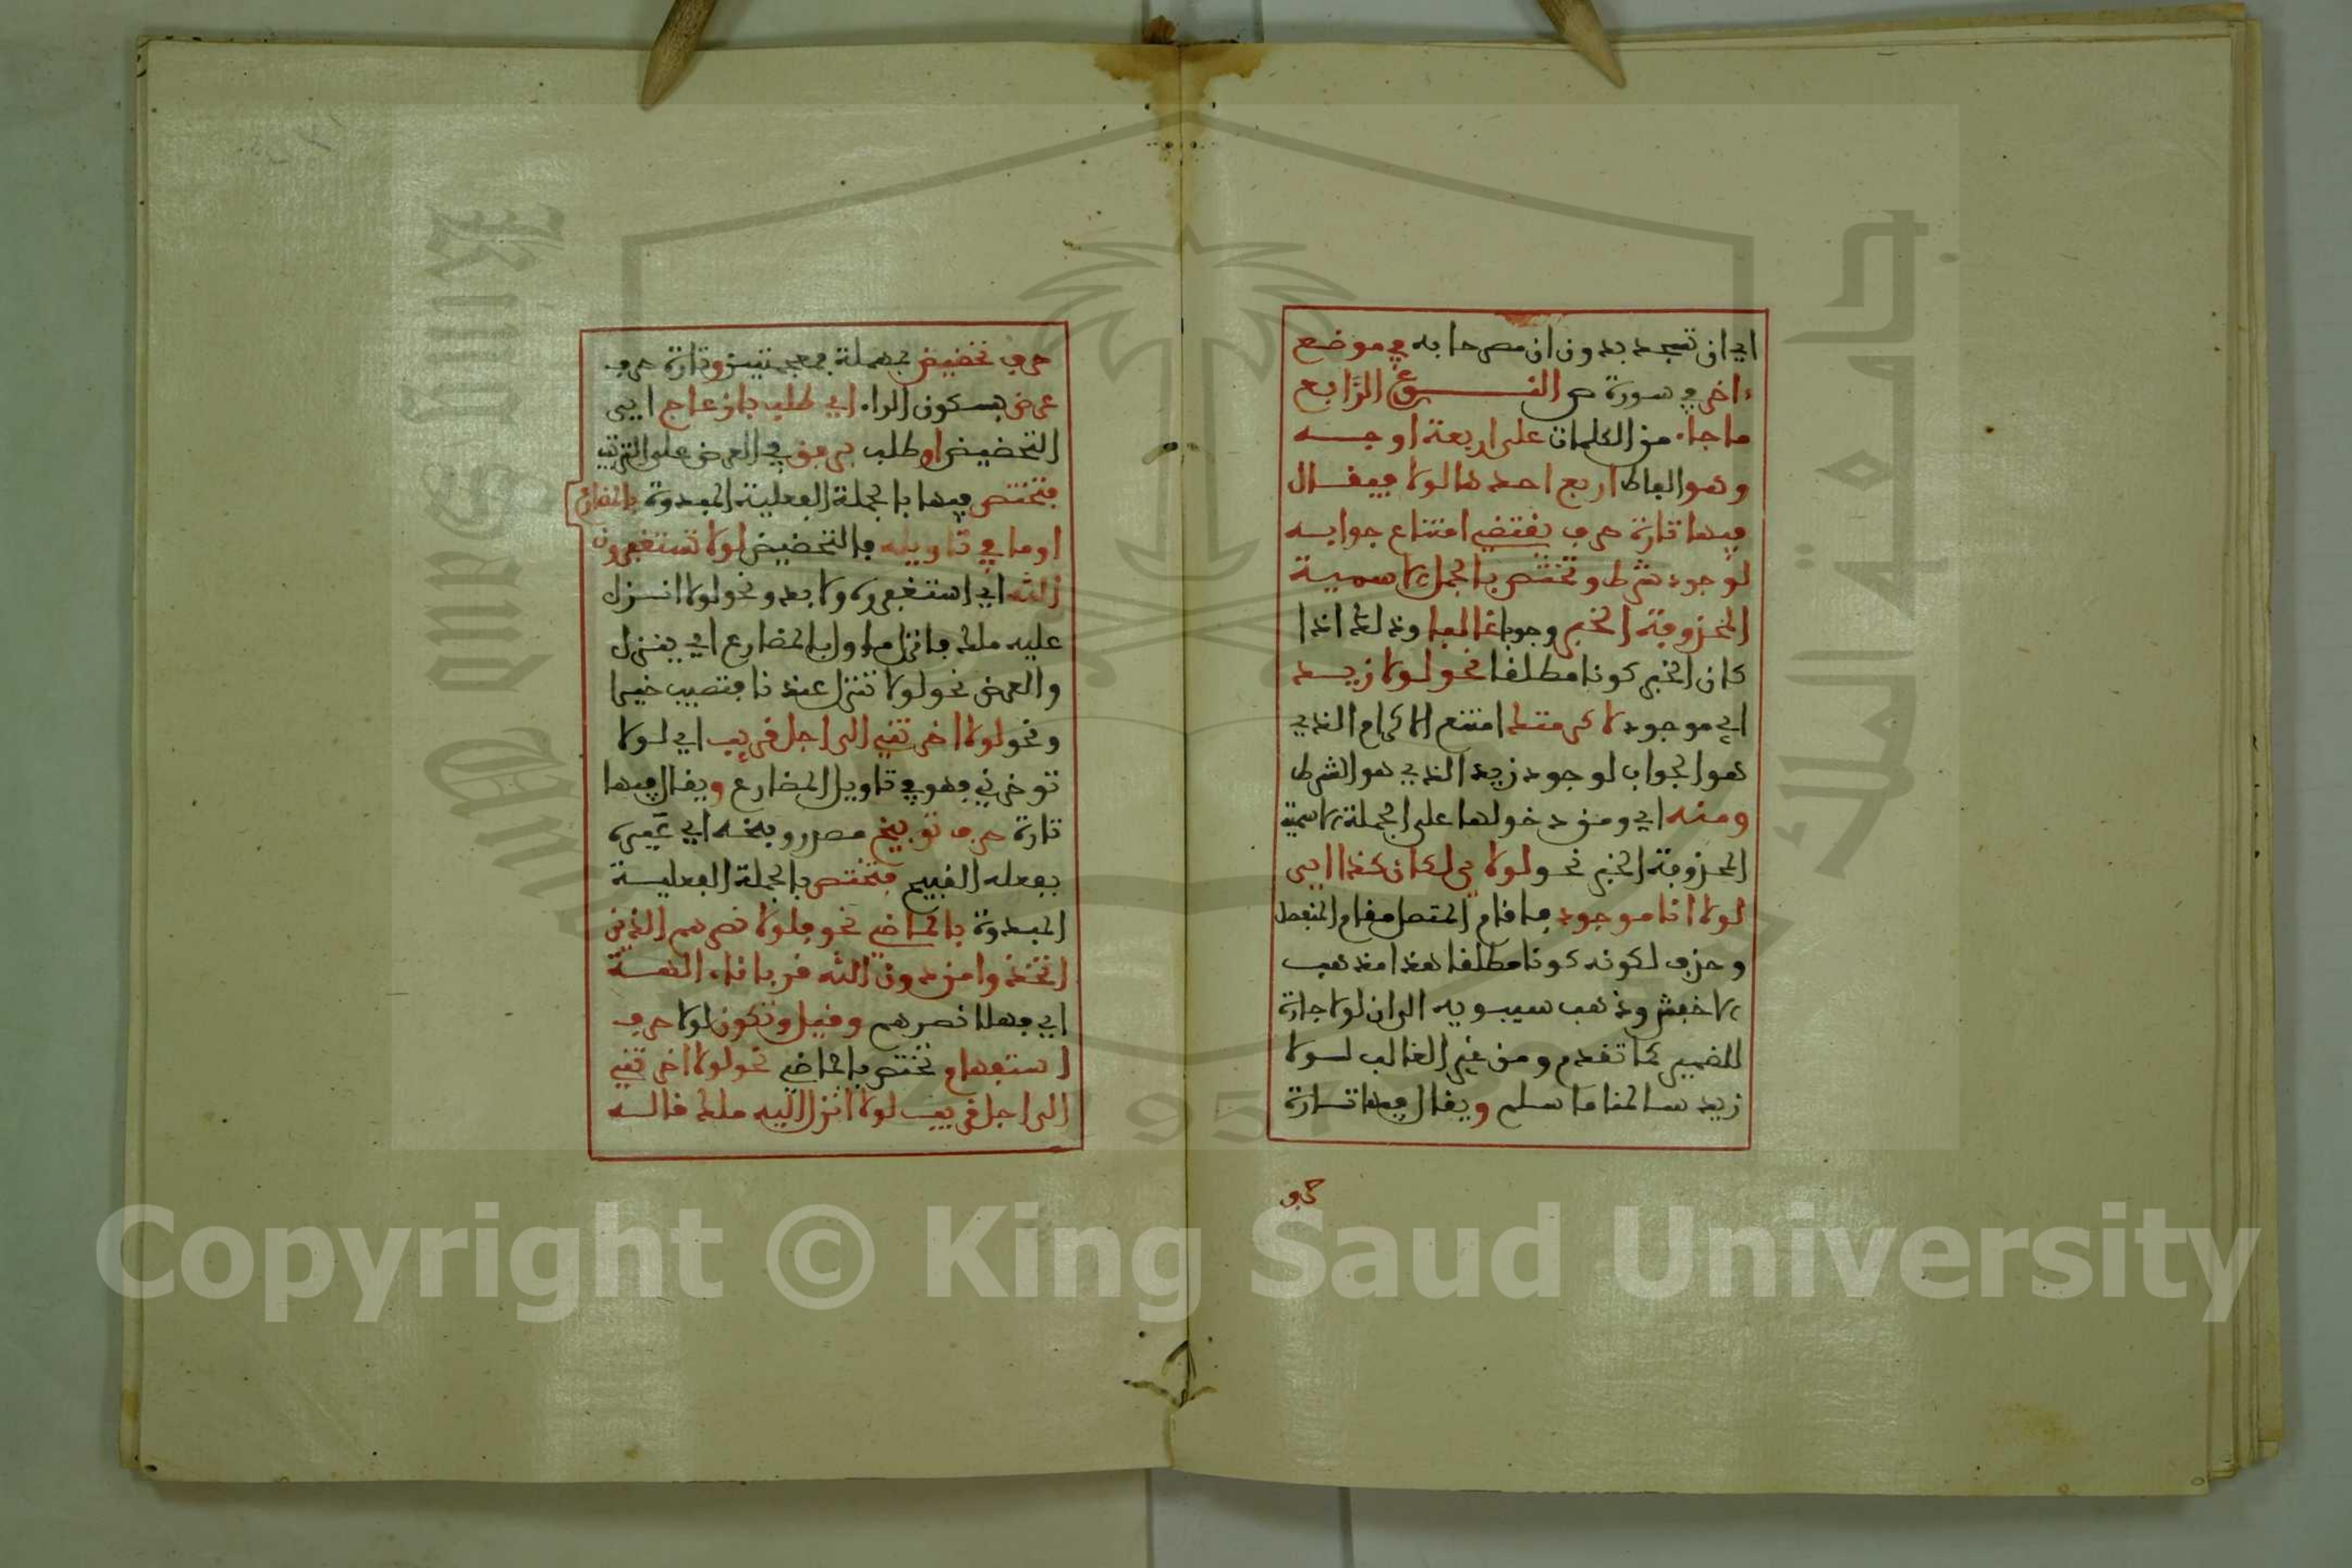 اي ان تسجد بدون ان مصرحا به في موضع
ءاخر في سورة ص النوع الرابع
ما جاء من الكلمات على اربعة اوجه
وهو الفاظ اربع احدها لولا فيقال
فيها تارة حرف يقتضي امتناع جوابه
لوجود شرط وتختص بالجمل الاسمية
المحذوفة الخبر وجوبا غالبا وذلك اذا
كان الخبر كونا مطلقا نحو لولا زيد
اي موجود لاكرمتك امتنع الاكرام الذي
هو الجواب لوجود زيد الذي هو الشرط
ومنه اي ومن دخولها على الجملة الاسمية
المحذوفة الخبر نحو لولاي لكان كذا اي
لولا انا موجود فاقام المتصل مقام المنفصل
وحذف لكونه كونا مطلقا هذا مذهب
الاخفش وذهب سيبويه الى ان لولا جارة
للضمير كما تقدم ومن غير الغالب لولا
زيد سالمنا ما سلم ويقال فيها تارة
حرف
حرف تحضيض بمهملة بمعجمتين وتارة حرف
عرض بسكون الراء اي طلب بازعاج اي
التحضيض او طلب برفق في العرض على الترتيب
فتختص فيها بالجملة الفعلية المبدوة بالمضارع
او ما في تاويله فالتحضيض لولا تستغفرون
الله اي استغفروه ولا بد ونحو لولا انزل
عليه ملك فانزل مؤول بالمضارع اي ينزل
والعرض نحو لولا تنزل عندنا فتصيب خيرا
ونحو لولا اخرتني الى اجل قريب اي لولا
توخرني فهو في تاويل المضارع ويقال فيها
تارة حرف توبيخ مصدر وبخه اي عيره
بفعله القبيح فتختص بالجملة الفعلية
المبدوة بالماضي نحو فلولا نصرهم الذين
اتخذوا من دون الله قربانا ءالهة
اي فهلا نصرهم وقيل وتكون لولا حرف
استفهام وتختص بالماضي نحو لولا اخرتني
الى اجل قريب لولا انزل اليه ملك قاله
Copyright © King Saud University